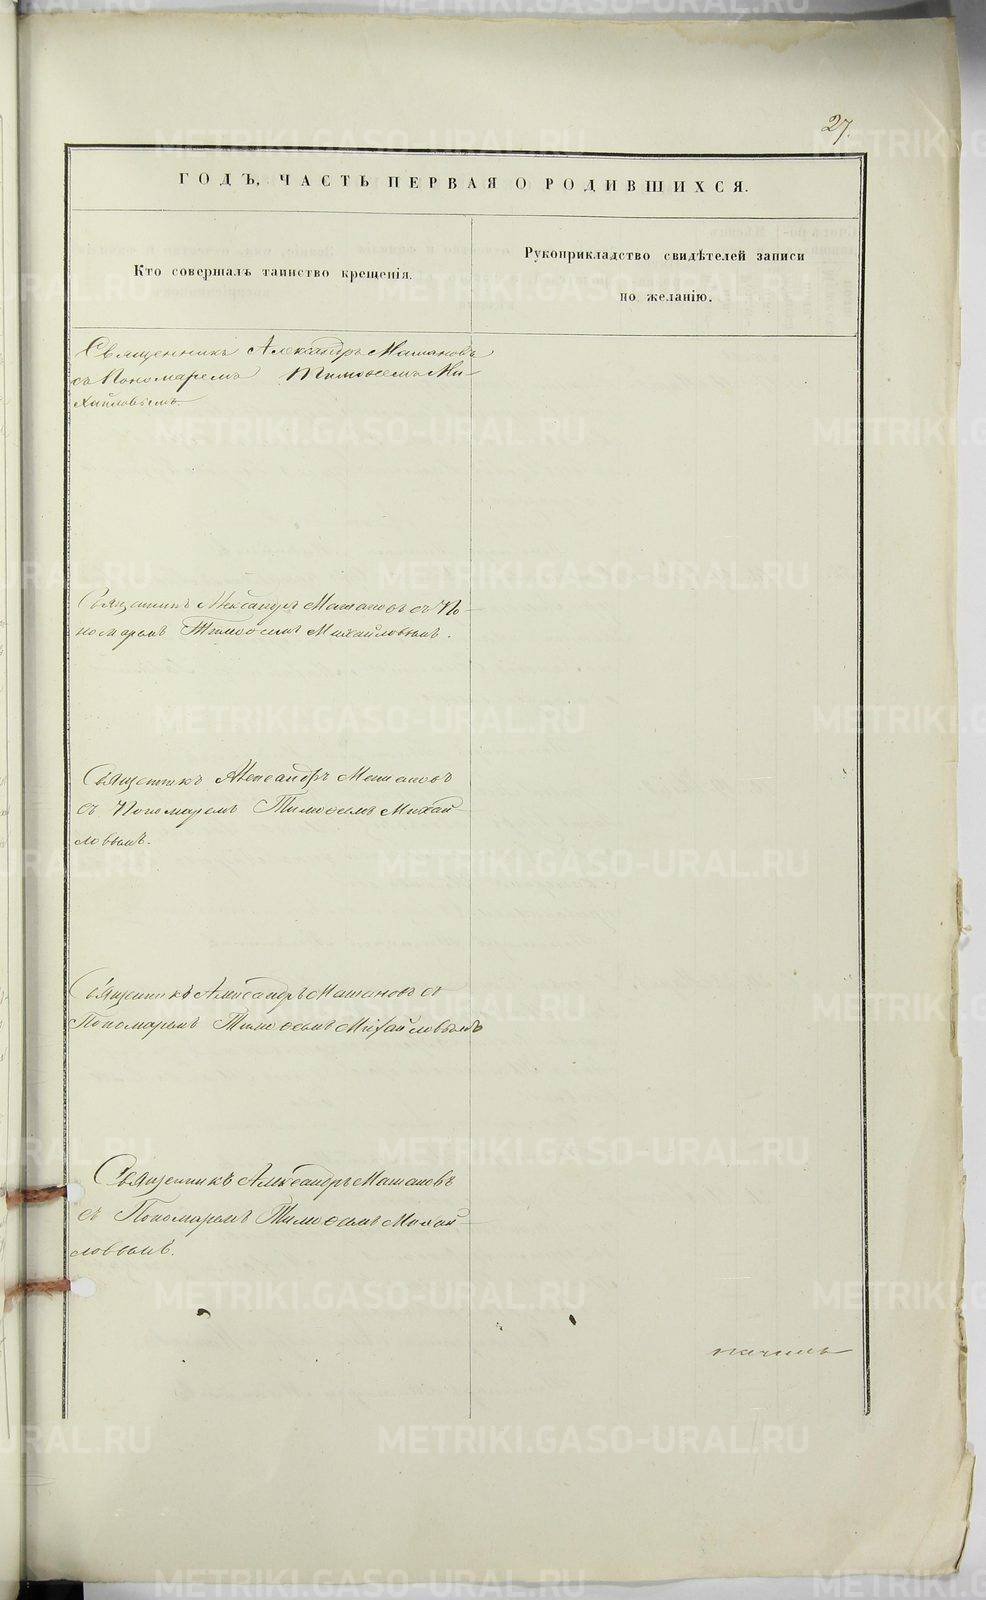 27.
ГОДЪ, ЧАСТЬ ПЕРВАЯ О РОДИВШИХСЯ.
Кто совершалъ таинство крещенія.
Рукоприкладство свидѣтелей записи
по желанію.
Священникъ Александръ Машановъ
съ Пономаремъ Тимоѳеемъ Ми-
хайловымъ.
Священникъ Александръ Машановъ съ По-
номаремъ Тимоѳеемъ Михайловымъ.
Священникъ Александръ Машановъ
съ Пономаремъ Тимоѳеемъ Михай-
ловымъ.
Священникъ Александръ Машановъ съ
Пономаремъ Тимоѳеемъ Михайловымъ
Священникъ Александръ Машановъ
съ Пономаремъ Тимоѳеемъ Михай-
ловымъ.
METRIKI.GASO-URAL.RU